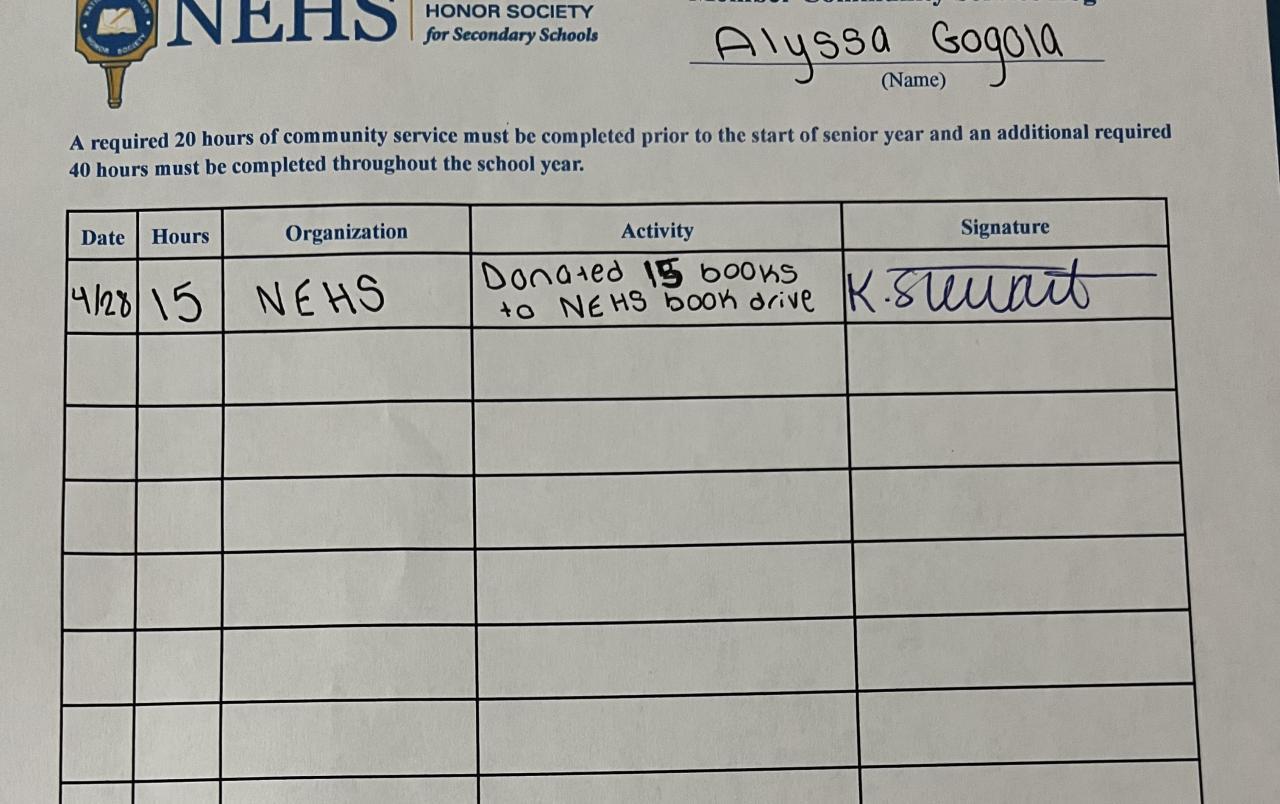 NEHS
HONOR SOCIETY
for Secondary Schools
Alyssa Gogola
(Name)
A required 20 hours of community service must be completed prior to the start of senior year and an additional required
40 hours must be completed throughout the school year.
Date Hours Organization Activity Signature
4/28 15 NEHS Donated 15 books
to NEHS book drive K. Stewart